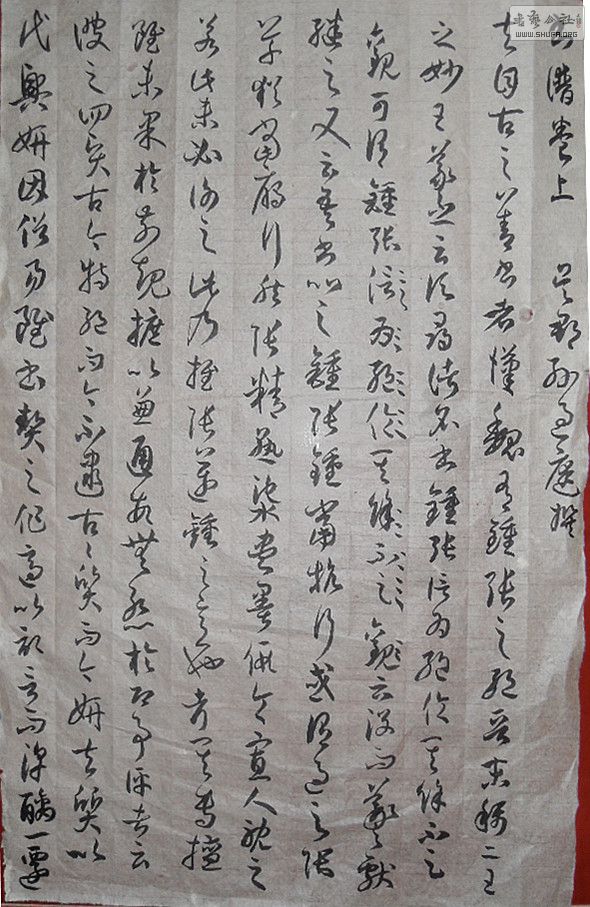 書譜卷上 吳郡孫過庭撰
夫自古之善書者漢魏有鍾張之絕晉末稱二王
之妙王羲之云頃尋諸名書鍾張信為絕倫其餘不足
觀可謂鍾張信為絕倫其餘不足觀云沒而羲獻
繼之又云吾書比之鍾張鍾當抗行或謂過之張
草猶當雁行然張精熟池水盡墨假令寡人耽之
若此未必謝之此乃推張邁鍾之意也考其專擅
雖未果於前規摭以兼通故無慚於即事評者云
彼之四賢古今特絕而今不逮古〻質而今妍夫質以
代興妍因俗易雖書契之作適以記言而淳醨一遷
書藝公社
WWW.SHUFA.ORG